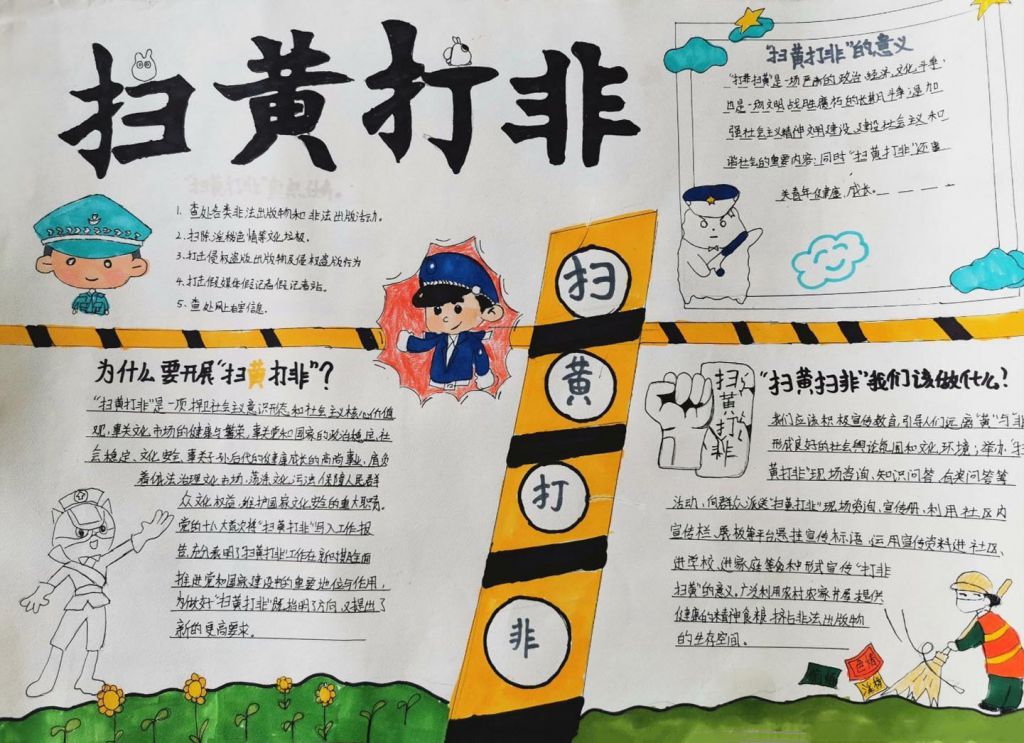 扫黄打非
1. 查处各类非法出版物和非法出版活动。
2. 扫除淫秽色情等文化垃圾。
3. 打击侵权盗版出版物及侵权盗版行为
4. 打击假媒体假记者假记者站。
5. 查处网上有害信息。
"扫黄打非"的意义
"打非扫黄"是一场严肃的政治、经济、文化斗争,
也是一场文明战胜腐朽的长期斗争;是加
强社会主义精神文明建设、建设社会主义和
谐社会的重要内容;同时"扫黄打非"还事
关青年健康成长。
扫
黄
打
非
为什么要开展"扫黄打非"?
"扫黄打非"是一项捍卫社会主义意识形态和社会主义核心价值
观,事关文化市场的健康与繁荣,事关党和国家的政治稳定、社
会稳定、文化安全、事关子孙后代的健康成长的高尚事业,肩负
着依法治理文化市场、荡涤文化污浊、保障人民群
众文化权益、维护国家文化安全的重大职责。
党的十八大首次将"扫黄打非"写入工作报
告,充分表明了"扫黄打非"工作在新
推进党和国家建设中的重要地位与作用,
为做好"扫黄打非"指明了方向,又提出了
新的更高要求。
扫黄打非
"扫黄扫非"我们该做什么?
我们应该积极宣传教育,引导人们远离"黄"与"非
形成良好的社会舆论氛围和文化环境;举办"扫
黄打非"现场咨询、知识问答、有奖问答等
活动,向群众派送"扫黄打非"现场资询,宣传册,利用社区内
宣传栏、展板等平台悬挂宣传标语,运用宣传资料进社区、
进学校、进家庭等各种形式宣传"打非
扫黄"的意义。广泛利用农村农家书屋提供
健康的精神食粮,挤占非法出版物
的生存空间。
色情